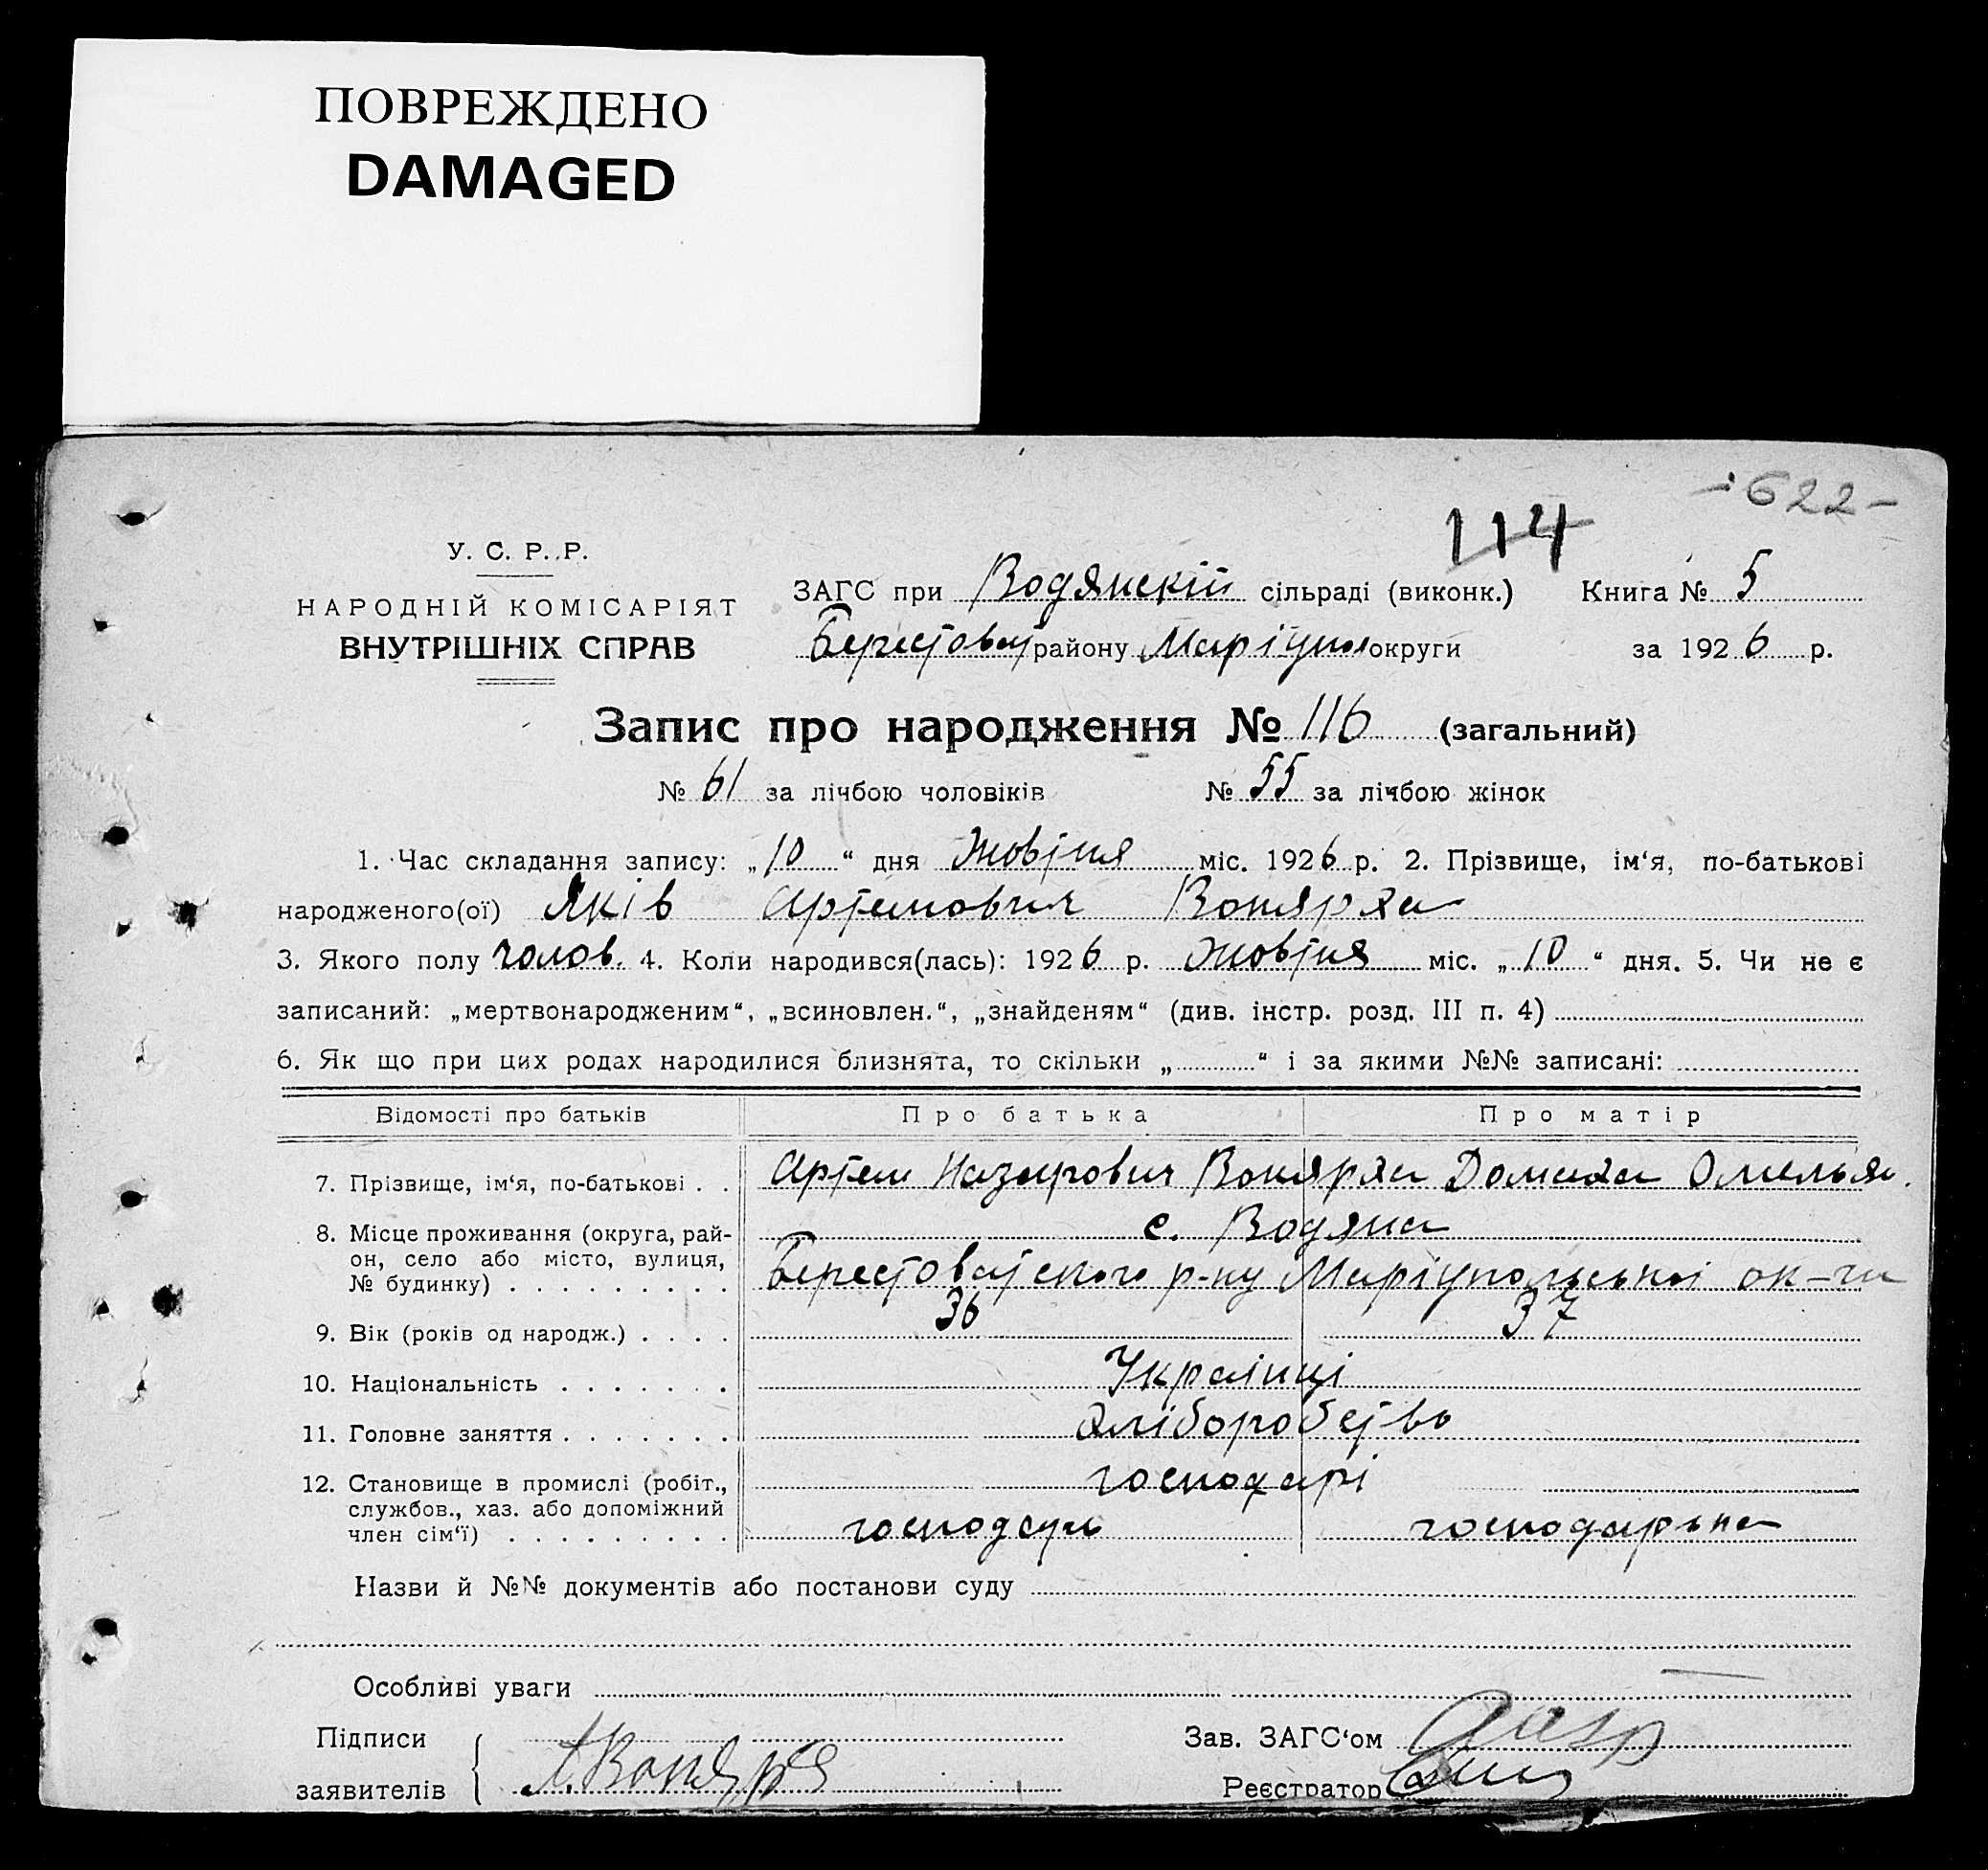 ПОВРЕЖДЕНО
DAMAGED
- 622 -
114
У. С. Р. Р.
НАРОДНІЙ КОМІСАРІЯТ
ВНУТРІШНІХ СПРАВ
ЗАГС при Водянскій сільраді (виконк.) Книга № 5
Берестоват району Маріупол округи за 1926 р.
Запис про народження № 116 (загальний)
№ 61 за лічбою чоловіків № 55 за лічбою жінок
1. Час складання запису: „10“ дня Жовтня міс. 1926 р. 2. Прізвище, ім‘я, по-батькові
народженого(ої) Яків Артемович
3. Якого полу чолов. 4. Коли народився(лась): 1926 р. Жовтня міс. „10“ дня. 5. Чи не є
записаний: „мертвонародженим“, „всиновлен.“, „знайденям“ (див. інстр. розд. III п. 4)
6. Як що при цих родах народилися близнята, то скільки „ “ і за якими №№ записані:
Відомості про батьків Про батька Про матір
7. Прізвище, ім‘я, по-батькові . . Артем Назарович Домаха Омелья.
8. Місце проживання (округа, рай- с. Водяна
он, село або місто, вулиця,
№ будинку) . . . . . . . . . Берестоватского р-ну Маріупольської ок-ги
9. Вік (років од народж.) . . . . 36 37
10. Національність . . . . . . . Українці
11. Головне заняття . . . . . . . Хліборобство
12. Становище в промислі (робіт., господарі
службов., хаз. або допоміжний
член сім‘ї) . . . . . . . . . господарь господарька
Назви й №№ документів або постанови суду
Особливі уваги
Підписи
Зав. ЗАГС‘ом
заявителів
Реєстратор